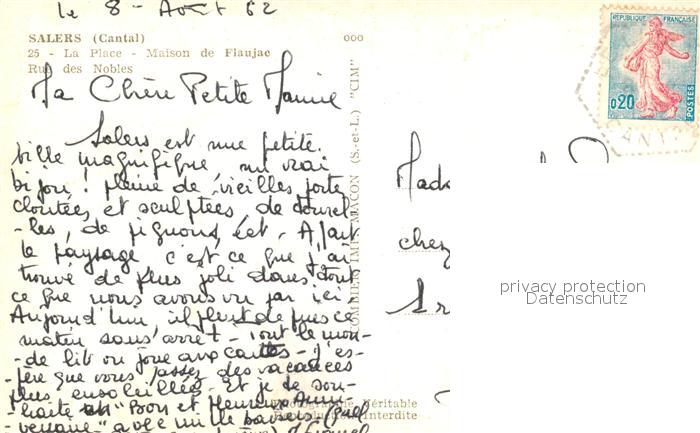 le 8 - Août 62
SALERS (Cantal)
25 - La Place - Maison de Flaujac
Rue des Nobles
ooo
Ma Chère Petite Mamie
Salers est une petite
ville magnifique, un vrai
bijou ! pleine de vieilles porte
cloutées et sculptées, de tourel-
-les, de pignons, ect. A part
le paysage c'est ce que j'ai
trouvé de plus joli dans tout
ce que nous avons vu par ici
Aujourd'hui il pleut depuis ce
matin sans arrêt - Tout le mon-
-de lit ou joue aux cartes - J'es-
-père que vous passez des vacances
plus ensoleillées - Et je te sou-
-haite un "Bon et heureux Anni-
versaire" avec mille baisers
(S.-et-L.) "CIM"
MACON
Véritable
Interdite
RÉPUBLIQUE FRANÇAISE
0,20
POSTES
Mad
chez
privacy protection
Datenschutz